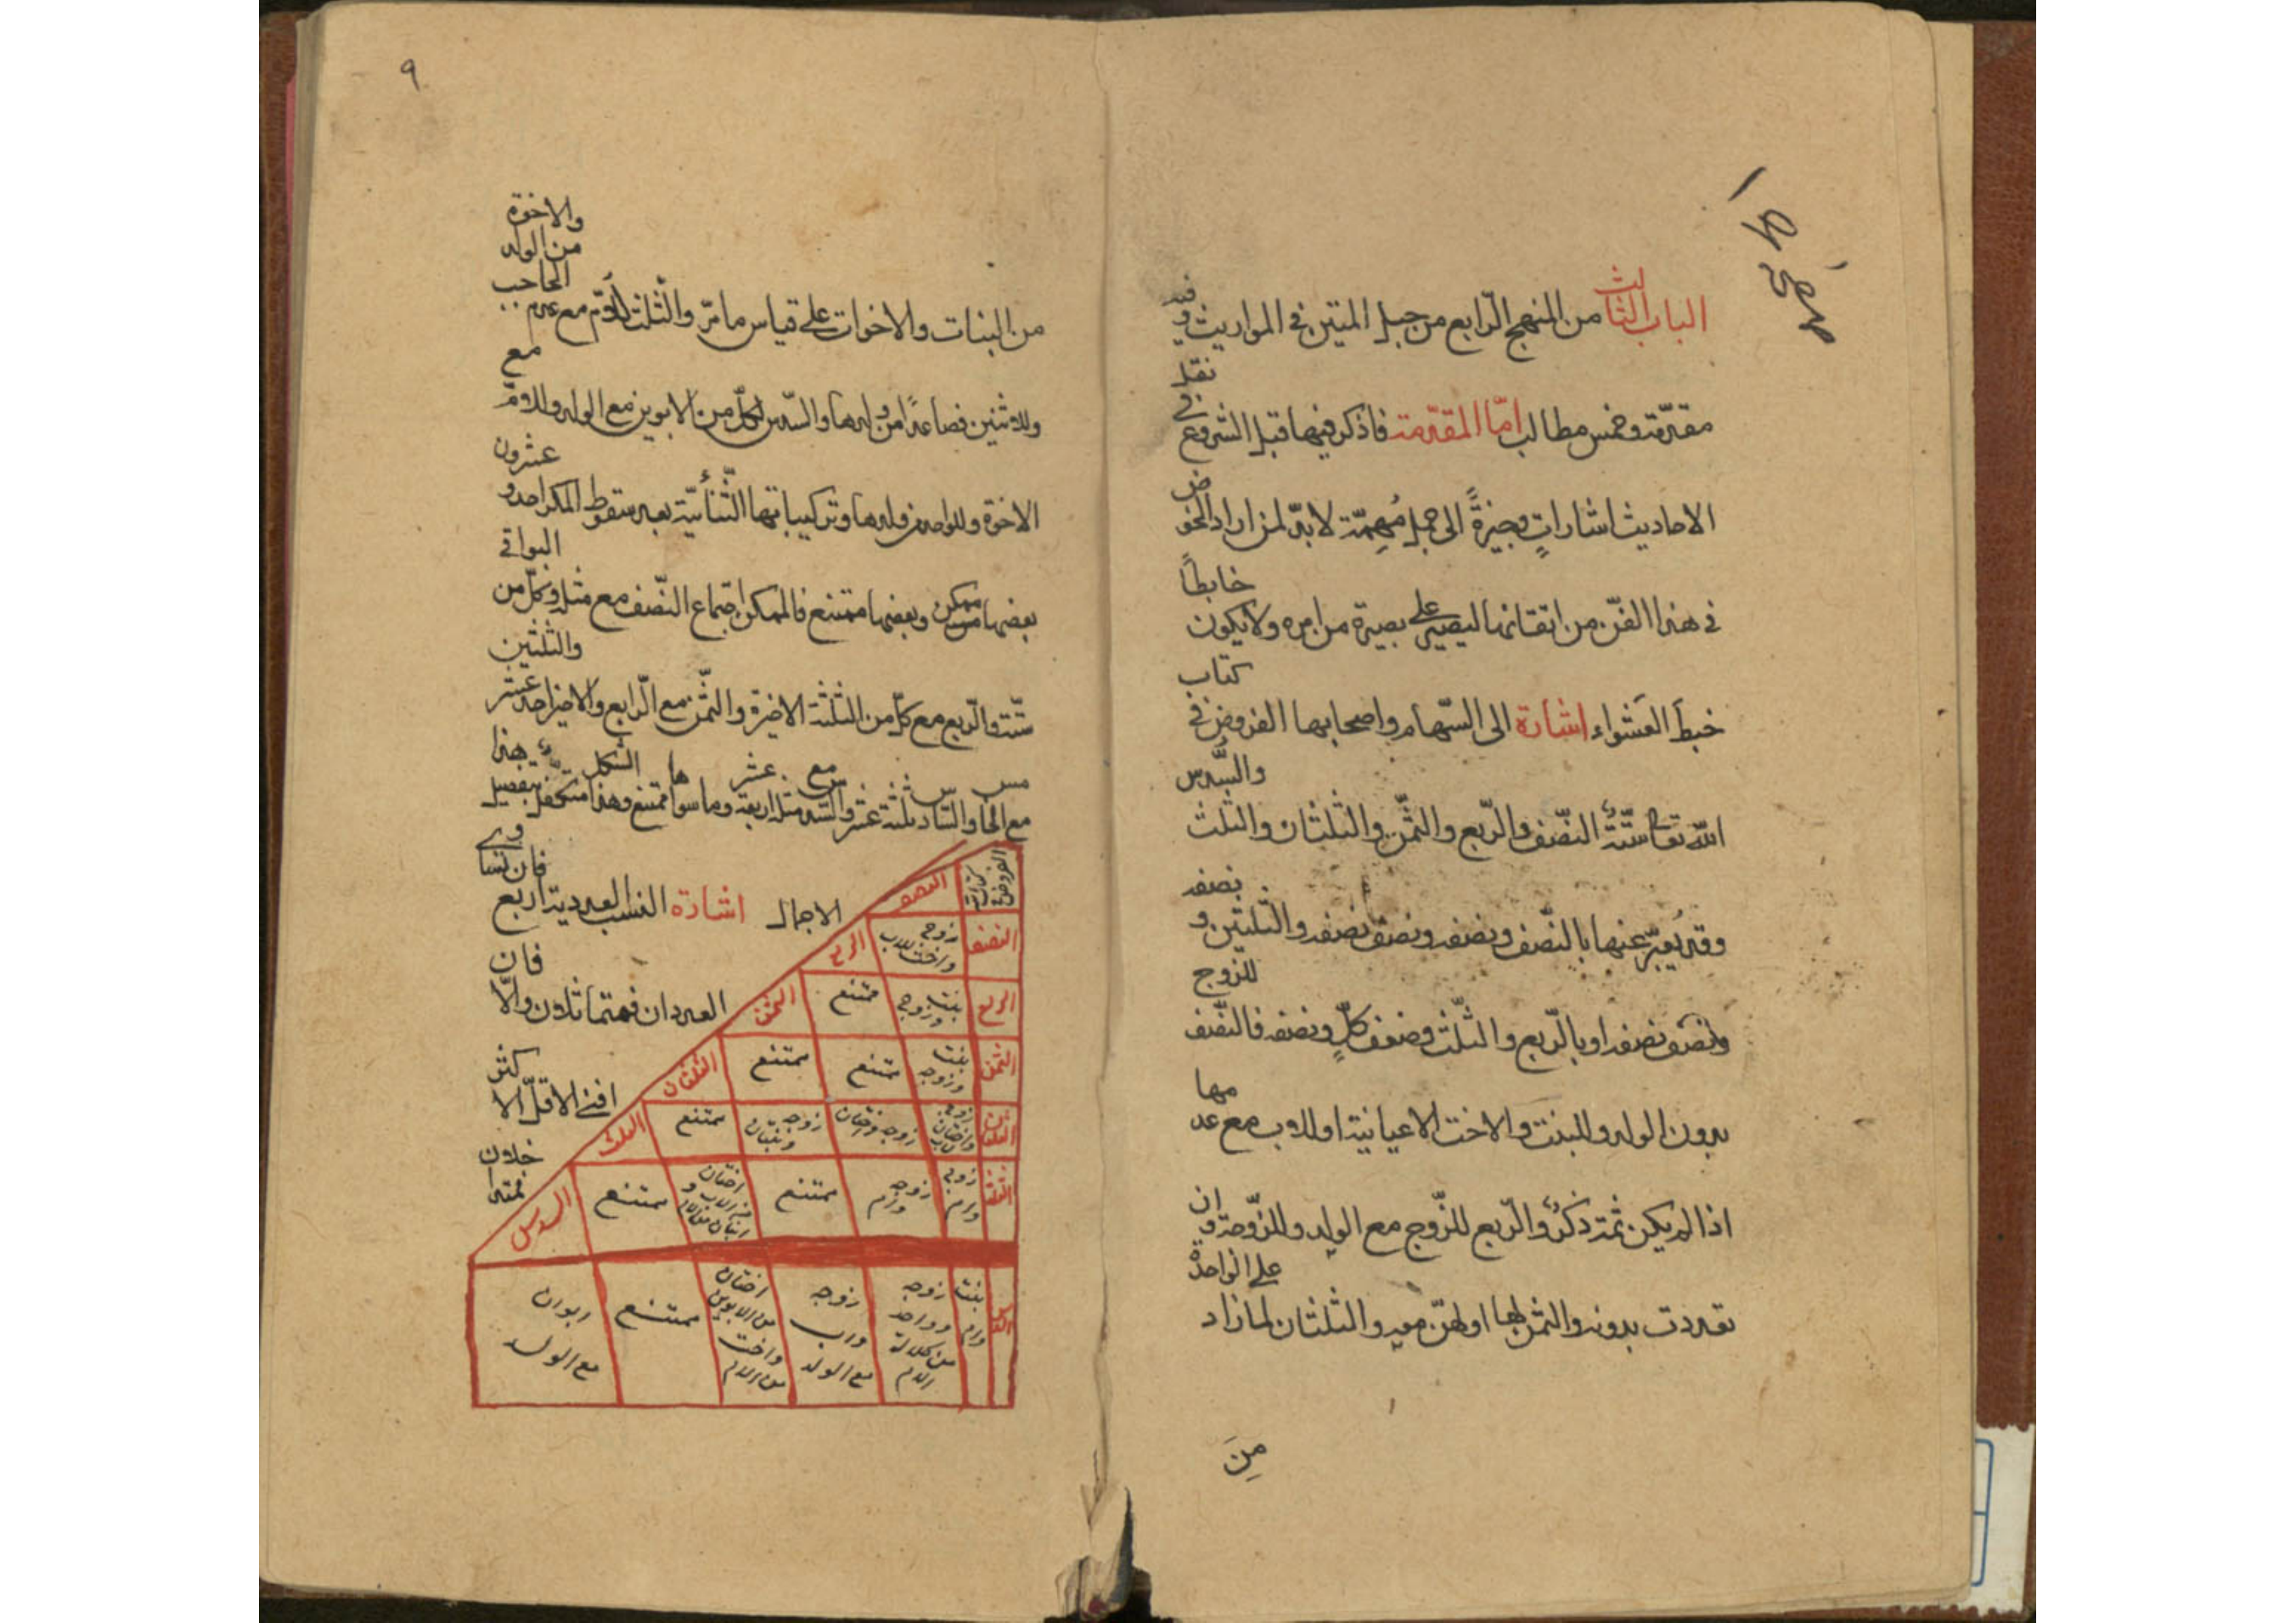 الباب الثالث من المنهج الرّابع من حبل المتين في المواريث وفيه
مقدّمة وخمس مطالب امّا المقدّمة فاذكر فيها قبل الشروع في نقل
الاحاديث اشاراتٍ وجيزةً الى جمل مُهِمّة لابدّ لمن اراد الخوض
في هذا الفنّ من اتقانها ليصير على بصيرة من امره ولا يكون خابطاً
خبطَ العَشواء اشارة الى السّهام واصحابها الفروض في كتاب
اللّه تعالى ستّةٌ النصّف والرّبع والثمّن والثلثان والثلث والسُّدس
وقد يُعبّر عنها بالنّصف ونصفه ونصف نصفه والثّلثين و نصفه
ونصف نصفه او بالرّبع والثلّث وضعف كلٍّ ونصفه فالنّصف للزوج
بدون الولد وللبنت والاخت الاعيانية او للاب مع عدمها
اذا لم يكن ثمة ذكرٌ والرّبع للزّوج مع الولد وللزّوجة وان
تعددت بدونه والثمن لها او لهنّ معه والثلثان لما زاد على الواحدة
مِنَ
٩
من البنات والاخوات على قياس ما مرّ والثلث للاُمّ مع عدم الحاجب من الولد والاخوة
وللاثنين فصاعداً من ولدها والسّدس لكلّ من الابوين مع الولد وللامّ مع
الاخوة وللواحد من ولدها وتركيباتها الثّنائيّة بعد سقوط المكرر احد و عشرون
بعضها ممكن وبعضها ممتنع فالممكن اجتماع النّصف مع مثله وكلّ من البواقي
ستّة والرّبع مع كلّ من الثلثة الاخيرة والثّمن مع الرّابع والاخير احد عشر والثلثين
مع الخامس والسّادس ثلثة عشر والسّدس مع مثله اربعة عشر وما سواها ممتنع وهذا الشكل متكفّل بتفصيل هذا
الاجمال اشارة النسب العددية اربع فان تساوى
العددان فمتماثلان والّا فان
افنى الاقلّ الاكثر
فمتداخلان
النصف
النصف
زوج واخت للاب
الربع
الربع
بنت وزوج
ممتنع
الثمن
الثمن
بنت وزوجه
ممتنع
ممتنع
الثلثان
الثلثان
زوج واختان للاب
زوجه واختان
زوجه وبنتان
ممتنع
الثلث
الثلث
زوج وام
زوجه وام
ممتنع
ممتنع
السدس
السدس
بنت وام
زوجه وواحد من كلالة الام
زوجه واب مع الولد
اختان من الابوين واخت من الام
ممتنع
ابوان مع الولد